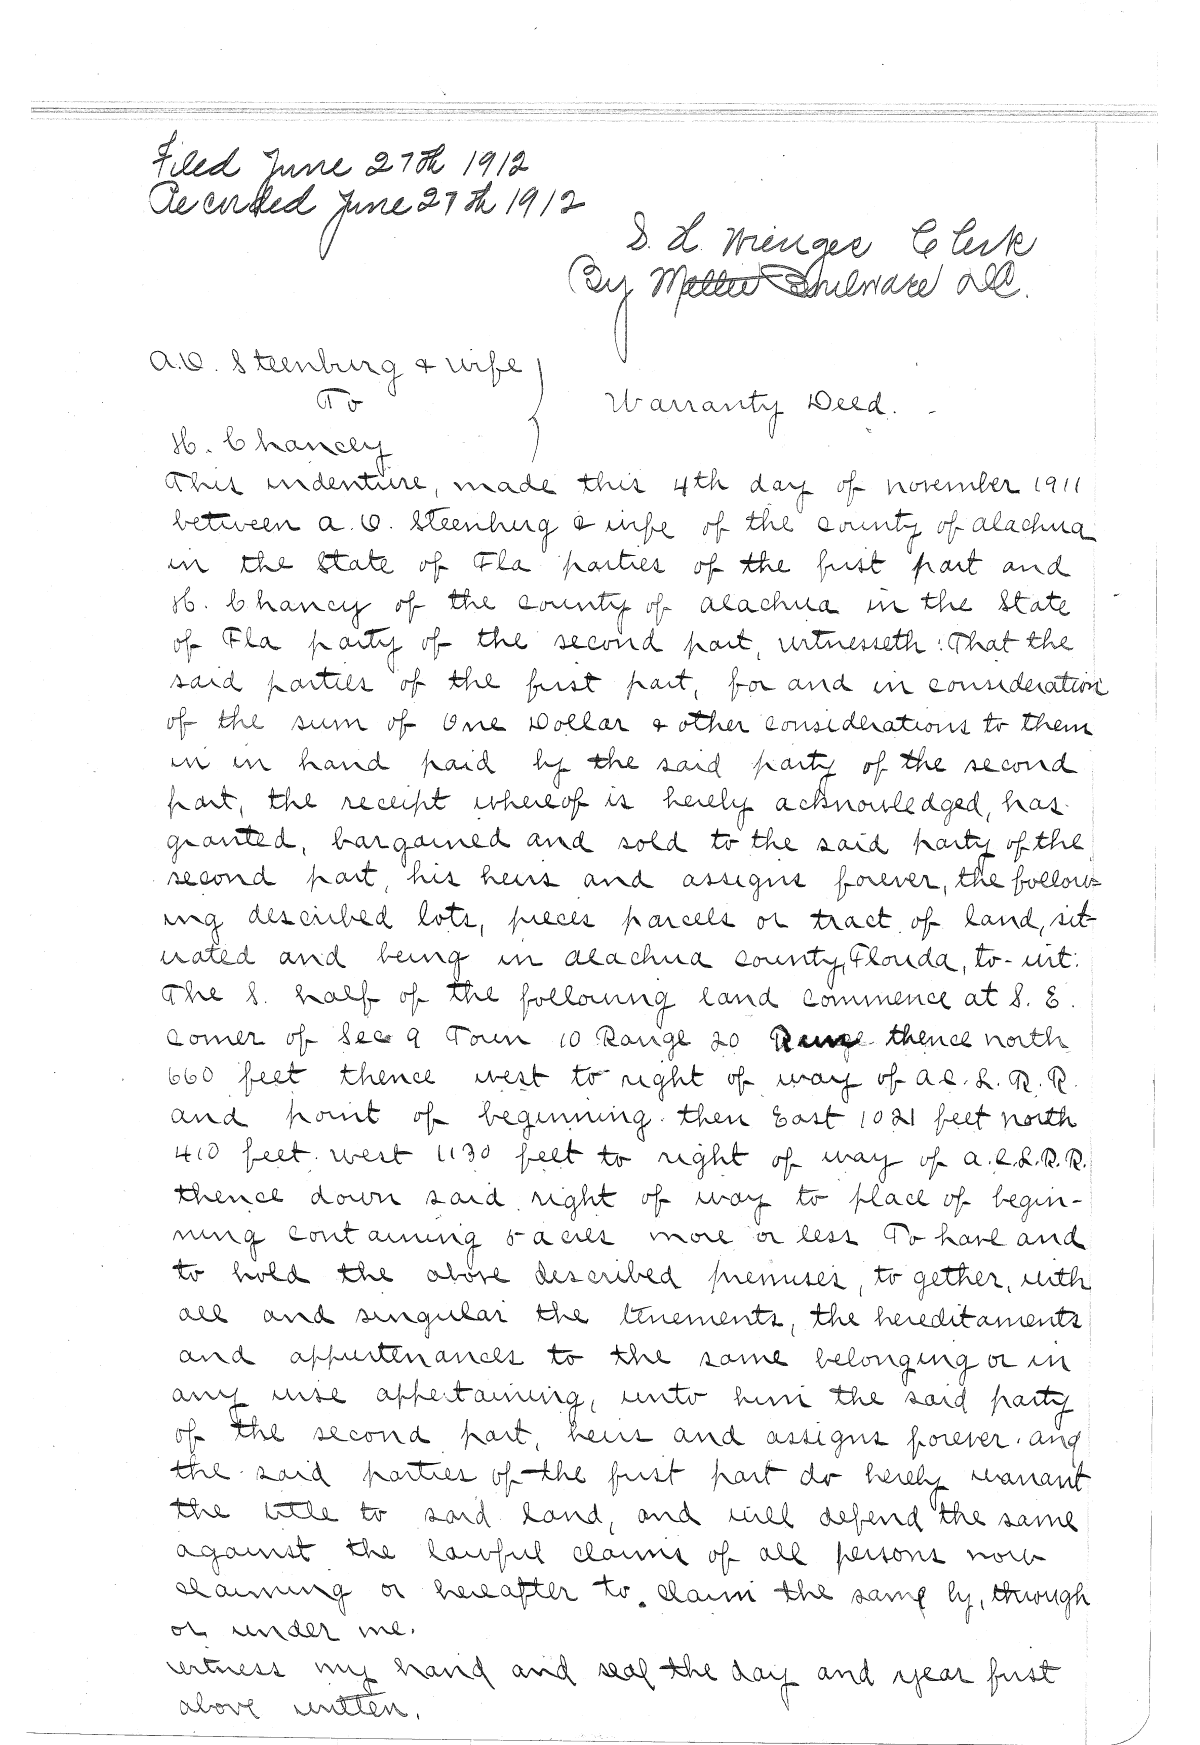 Filed June 27th 1912
Recorded June 27th 1912
S. H. Wienges Clerk
By D.C.
A.O. Steenburg & wife
To
Warranty Deed.
H. Chancey
This indenture, made this 4th day of november 1911
between A. O. Steenburg & wife of the county of alachua
in the State of Fla parties of the first part and
H. Chancy of the county of alachua in the State
of Fla party of the second part, witnesseth: That the
said parties of the first part, for and in consideration
of the sum of One Dollar & other considerations to them
in in hand paid by the said party of the second
part, the receipt whereof is hereby acknowledged, has
granted, bargained and sold to the said party of the
second part, his heirs and assigns forever, the follow-
ing described lots, pieces parcels or tract of land, sit-
uated and being in alachua county, Florida, to-wit:
The S. half of the following land commence at S. E.
corner of Sec 9 Town 10 Range 20 thence north
660 feet thence west to right of way of A.C.L. R.R.
and point of beginning. then East 1021 feet north
410 feet. west 1130 feet to right of way of A.C.L.R.R.
thence down said right of way to place of begin-
ning containing 5 acres more or less To have and
to hold the above described premises, to gether, with
all and singular the tenements, the hereditaments
and appurtenances to the same belonging or in
any wise appertaining, unto him the said party
of the second part, heirs and assigns forever. and
the said parties of the first part do hereby warrant
the title to said land, and will defend the same
against the lawful claims of all persons now
claiming or hereafter to claim the same by, through
or under me.
witness my hand and seal the day and year first
above written.